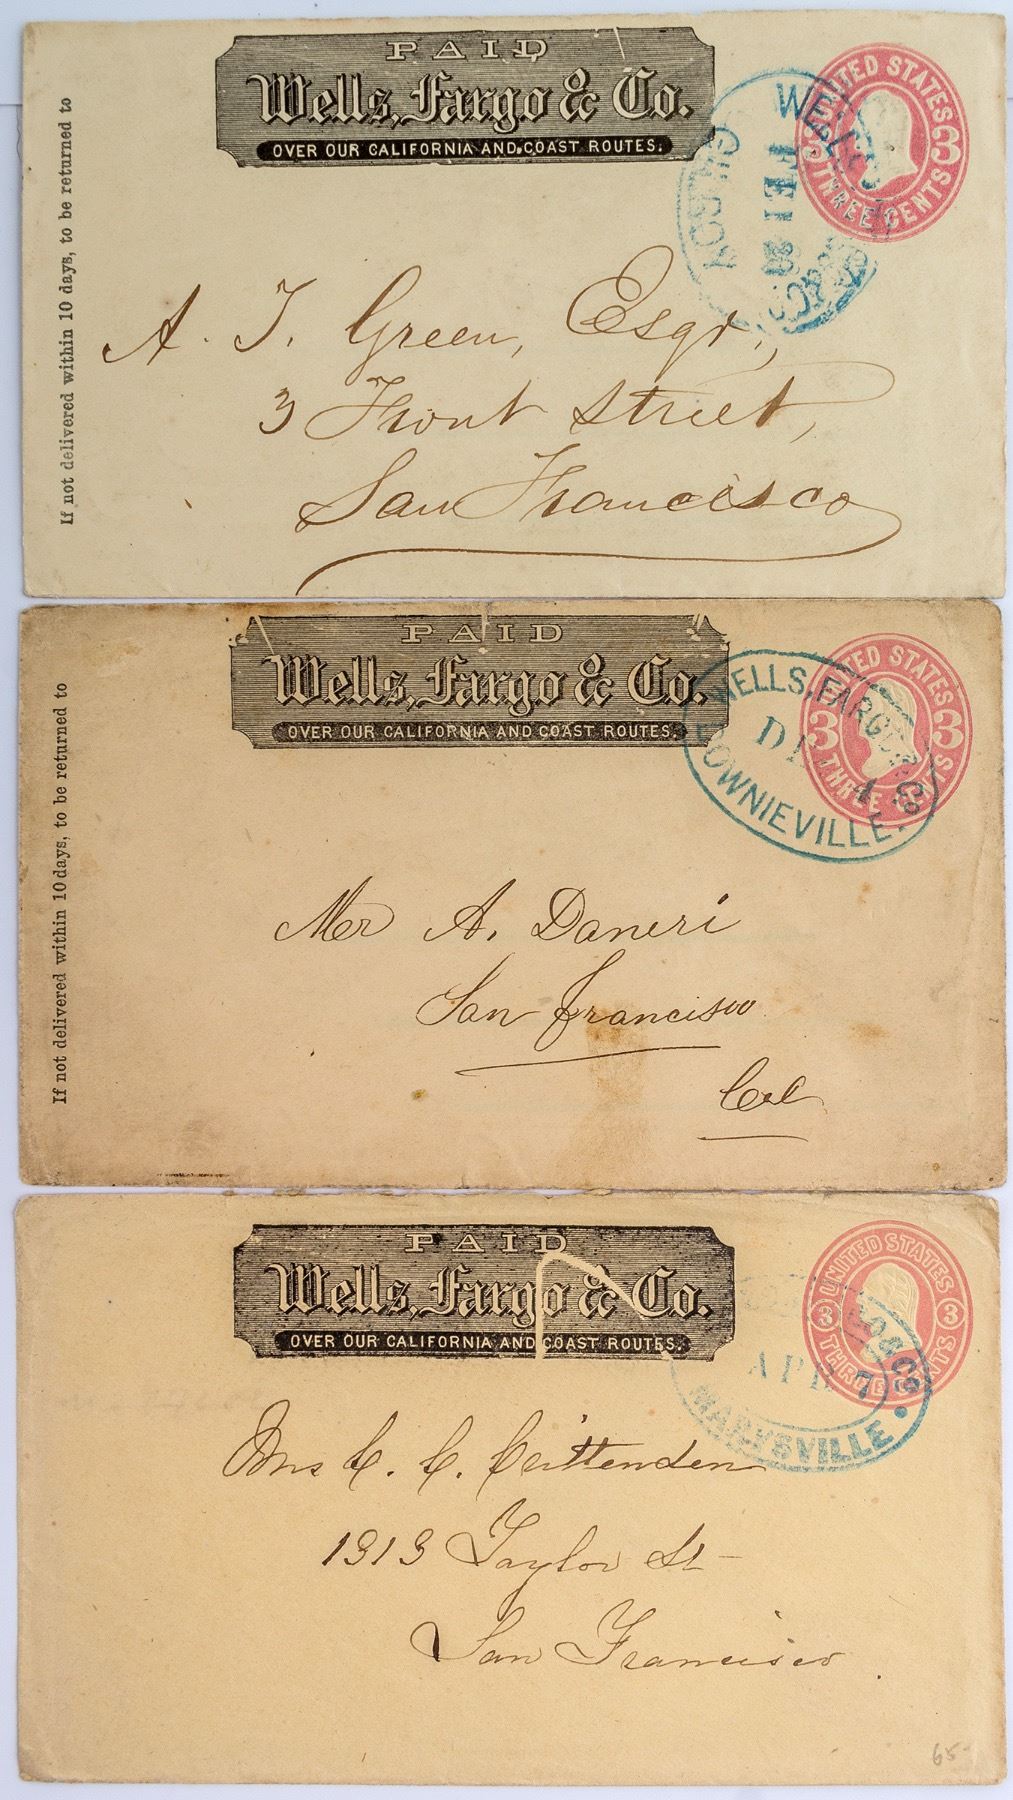 PAID
Wells, Fargo & Co.
OVER OUR CALIFORNIA AND COAST ROUTES.
UNITED STATES
3 3
THREE CENTS
WELLS
FEB 28
If not delivered within 10 days, to be returned to
A. J. Green, Esqr.,
3 Front Street,
San Francisco
PAID
Wells, Fargo & Co.
OVER OUR CALIFORNIA AND COAST ROUTES.
UNITED STATES
3 3
THREE CENTS
WELLS, FARGO & Co
DE 4
DOWNIEVILLE.
If not delivered within 10 days, to be returned to
Mr A. Daneri
San Francisco
Cal
PAID
Wells, Fargo & Co.
OVER OUR CALIFORNIA AND COAST ROUTES.
UNITED STATES
3 3
THREE CENTS
GO & Co
APR 7
MARYSVILLE
Mrs C. C. Crittenden
1313 Taylor St
San Francisco.
65